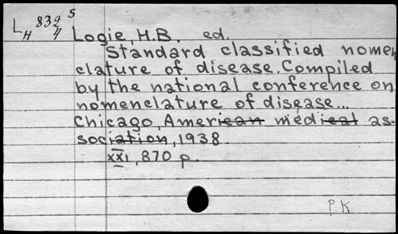 L 832 S
H 4
Logie, H.B. ed.
Standard classified nomen
clature of disease. Compiled
by the national conference on
nomenclature of disease...
Chicago, American medical as-
sociation, 1938.
xxi, 870 p.
P.K